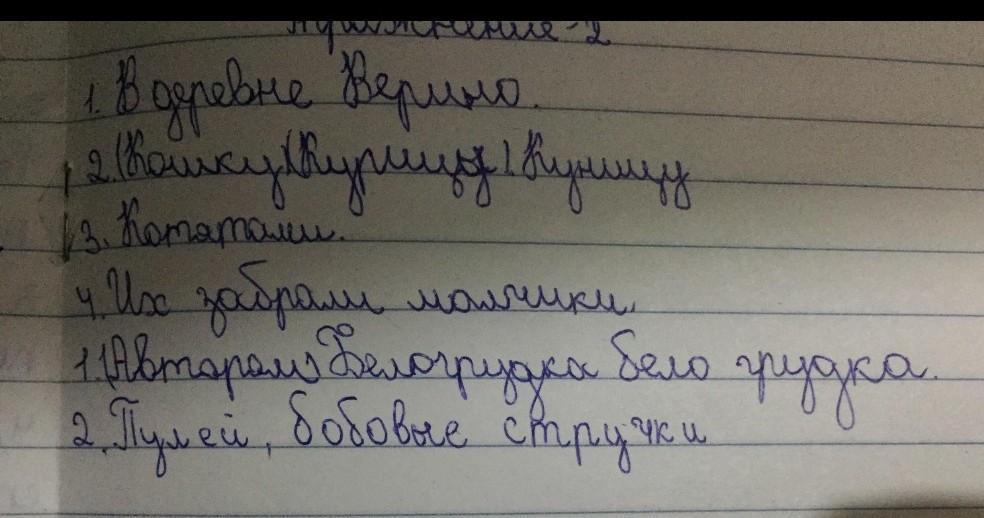 Упражнение-2
1. В деревне Верино.
2. (Кошку) (Курицу) Куницу
3. Котятами.
4. Их забрали мальчики.
1. (Автором) Белогрудка бело грудка.
2. Пулей, бобовые стручки